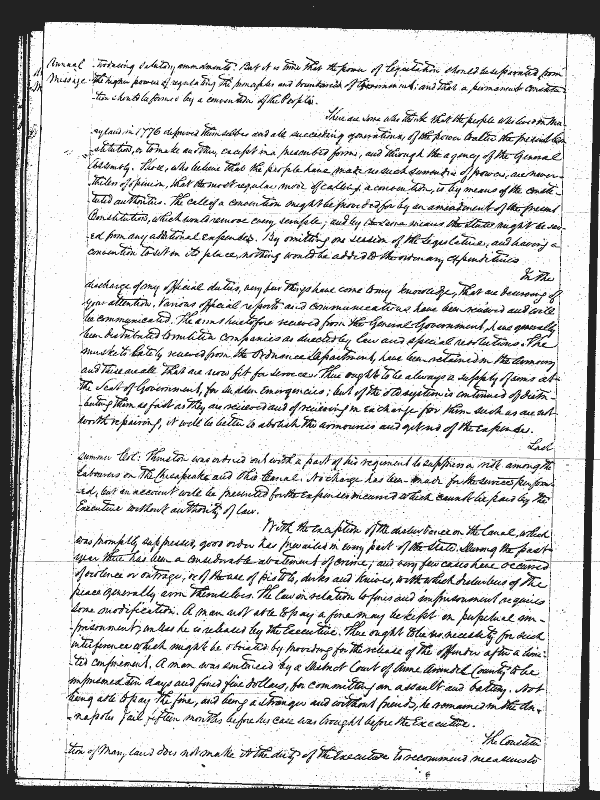 Annual
Message
troducing salutary amendments. But it is time that the power of legislation should be separated from
the higher power of regulating the principles and boundaries of Government; and that a permanent constitu-
tion should be formed by a convention of the People.
There are some who think that the people who lived in Ma-
ryland in 1776 deprived themselves and all succeeding generations, of the power to alter the present Con-
stitution, or to make another, except in a prescribed form, and through the agency of the General
Assembly. Those, who believe that the people have made no such surrender of powers, are never-
theless of opinion, that the most regular mode of calling a convention, is by means of the consti-
tuted authorities. The call of a convention might be provided for by an amendment of the present
Constitution, which would remove every scruple; and by the same means the State might be sav-
ed from any additional expense. By omitting one session of the Legislature, and having a
convention to sit in its place, nothing would be added to the ordinary expenditures.
In the
discharge of my official duties, very few things have come to my knowledge, that are deserving of
your attention. Various official reports and communications have been received and will
be communicated. The arms heretofore received from the General Government, have generally
been distributed to militia companies as directed by law and special resolutions. The
muskets lately received from the Ordnance Department, have been retained in the armory
and these are all that are now fit for service. There ought to be always a supply of arms at
the Seat of Government, for sudden emergencies; but if the old system is continued of distri-
buting them as fast as they are received and of receiving in exchange for them such as are not
worth repairing, it will be better to abolish the armories and get rid of the expense.
Last
summer Col: Thruston was ordered out with a part of his regiment to suppress a riot among the
labourers on the Chesapeake and Ohio Canal. No charge has been made for the service perform-
ed, but an account will be presented for the expenses incurred which cannot be paid by the
Executive without authority of law.
With the exception of the disturbance on the Canal, which
was promptly suppressed, good order has prevailed in every part of the State. During the past
year there has been a considerable abatement of crime; and very few cases have occurred
of violence or outrage, or of the use of pistols, dirks and knives, with which disturbers of the
peace generally arm themselves. The law in relation to fines and imprisonment requires
some modification. A man not able to pay a fine may be kept in perpetual im-
prisonment, unless he is released by the Executive. There ought to be no necessity for such
interference which might be obviated by providing for the release of the offender after a limi-
ted confinement. A man was sentenced by a District Court of Anne Arundel County to be
imprisoned ten days and fined five dollars, for committing an assault and battery. Not
being able to pay the fine, and being a stranger and without friends, he remained in the An-
napolis Jail fifteen months before his case was brought before the Executive.
The Constitu-
tion of Maryland does not make it the duty of the Executive to recommend measures to